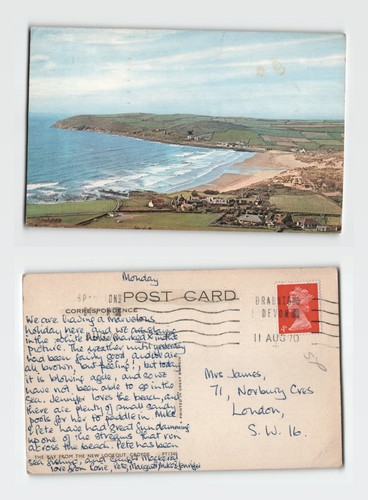 Monday
POST CARD
CORRESPONDENCE
We are having a marvelous
holiday here, and we are staying
in the white house marked X in the
picture. The weather until yesterday
had been fairly good, and we are all
brown, but peeling!, but today
it is blowing a gale, and so we
have not been able to go in the
sea. Jennifer loves the beach, and
there are plenty of small sandy
pools for her to paddle in. Mike
& Pete have had great fun damming
up one of the streams that run
across the beach. Pete has been
sea fishing, and caught
love from Rosie, Pete, Margaret Mike & Jennifer
THE BAY FROM THE NEW LOOKOUT, CROYDE
BRAUNTON
DEVON
11 AUG 70
4D
Mrs James,
71, Norbury Cres
London,
S.W. 16.